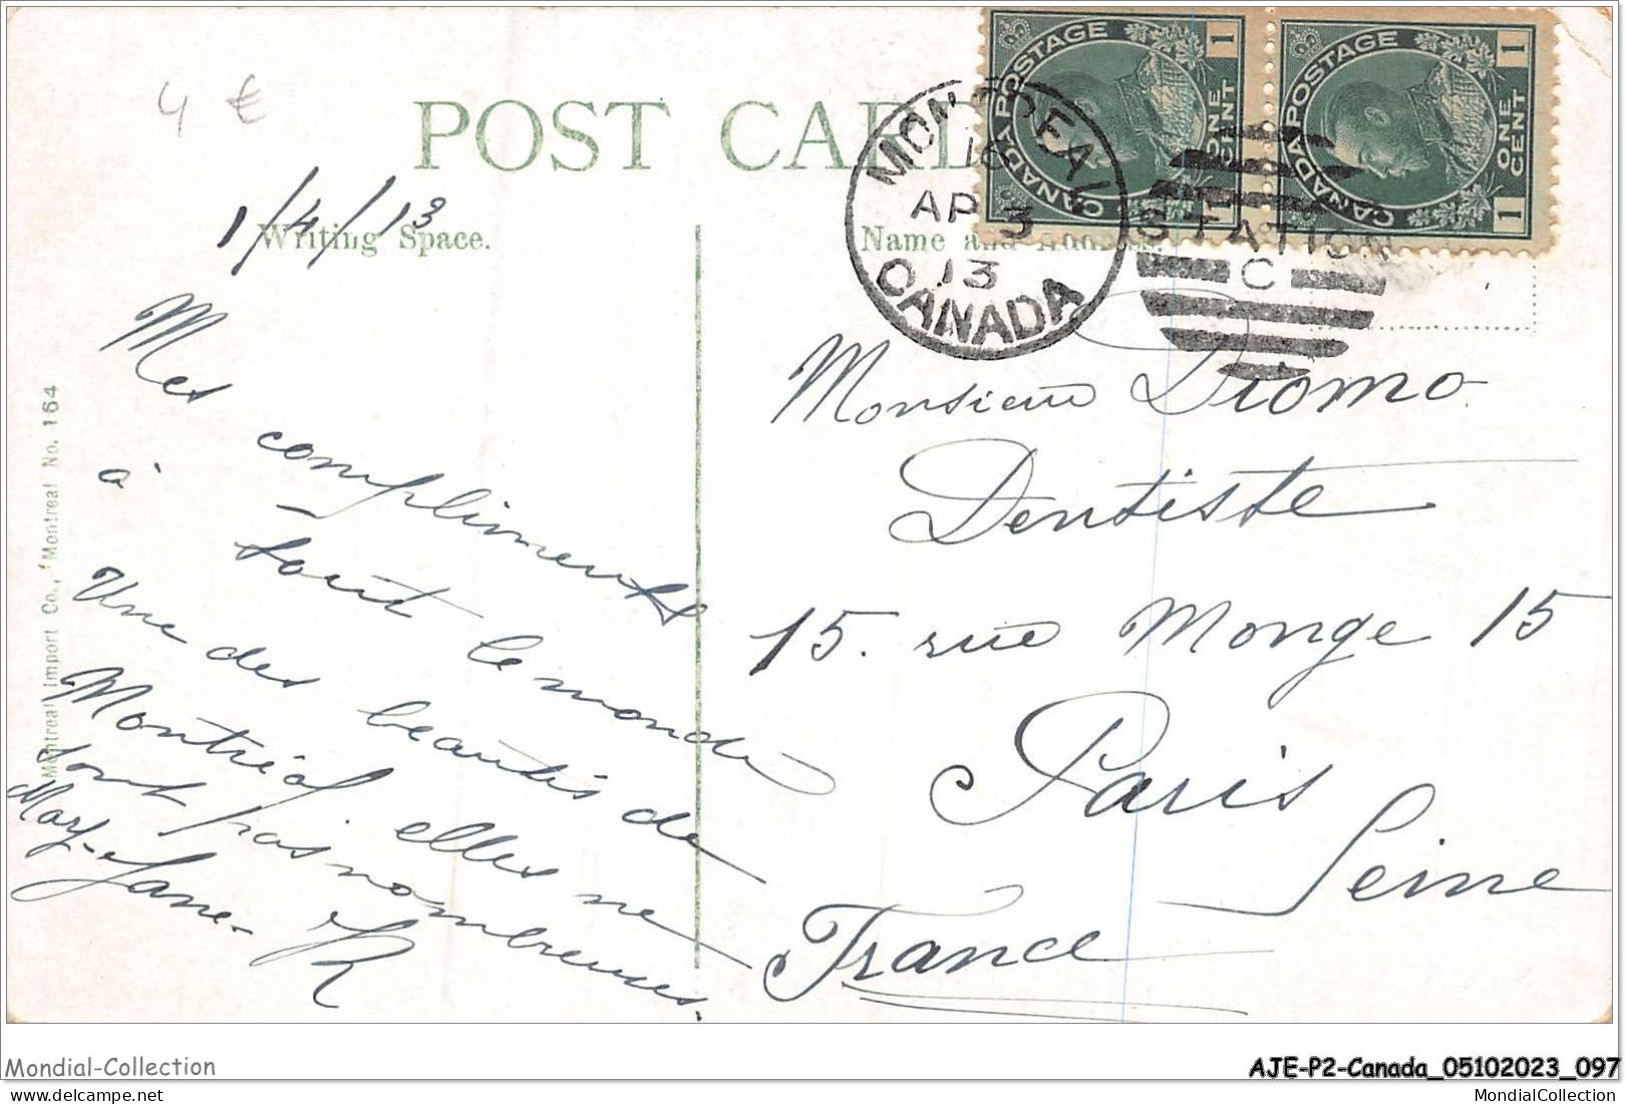 4 €
POST CARD
CANADA POSTAGE
ONE CENT
1 1
CANADA POSTAGE
ONE CENT
1 1
MONTREAL
AP 3
13
CANADA
STATION
C
1/4/13
Writing Space.
Name and Address.
Mes compliments
à tout le monde
Une des beautés de
Montréal, elles ne
sont pas nombreuses.
Mary-Jane. R
Monsieur Diomo
Dentiste
15. rue Monge 15
Paris
Seine
France
Montreal Import Co., Montreal No. 164
Mondial-Collection
AJE-P2-Canada_05102023_097
MondialCollection